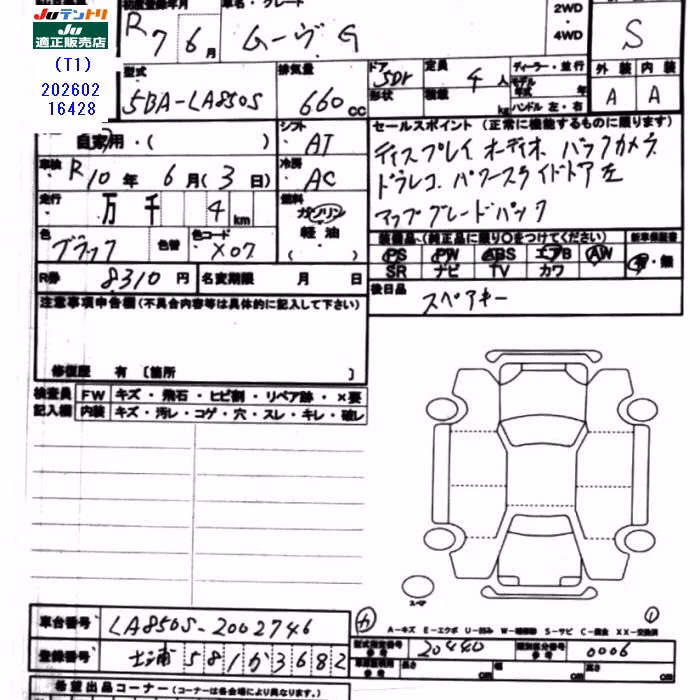 Juテントリ
Ju
適正販売店
(T1)
202602
16428
初度登録年月
車名・グレード
R7年6月
ムーヴ G
2WD
・
4WD
S
型式
5BA-LA850S
排気量
660cc
ドア 5Dr
形状
定員 4人
積載 kg
ディーラー・並行
モデル年式 年
ハンドル 左・右
外装 内装
A A
自家用・( )
シフト AT
セールスポイント (正常に機能するものに限ります)
ディスプレイオーディオ バックカメラ
ドラレコ、パワースライドドア左
アップグレードパック
車検 R10年6月(3日)
冷房 AC
走行 万千4km
燃料
ガソリン
軽油
( )
色 ブラック 色替 色コード X07
装備品 (純正品に限り○をつけてください) 新車保証書
PS PW ABS エアB AW 有・無
SR ナビ TV カワ
R券 8310円 名変期限 月 日
後日品 スペアキー
注意事項申告欄 (不具合内容等は具体的に記入して下さい)
修復歴 有 〔箇所 〕
検査員 FW キズ・飛石・ヒビ割・リペア跡・×要
記入欄 内装 キズ・汚レ・コゲ・穴・スレ・キレ・破レ
スペア
A-キズ E-エクボ U-凹み W-補修跡 S-サビ C-腐食 XX-交換済
車台番号 LA850S-2002746
登録番号 土浦581か3682
型式指定番号 参考 20440 類別区分番号 参考 0006
長さ cm 幅 cm 高さ cm
希望出品コーナー (コーナーは各会場により異なります。)